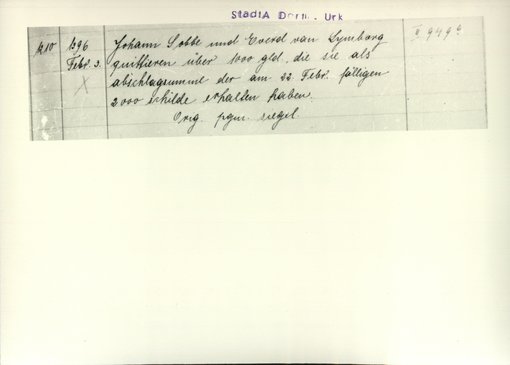 StadtA Dortm. Urk
410 1396 Johann Sobbe und Everd van Lymborg II 949 b
Febr. 3. quittieren über 1000 gld., die sie als
X abschlagsumme der am 22 Febr. fälligen
2000 schilde erhalten haben.
Orig. pgm. siegel.